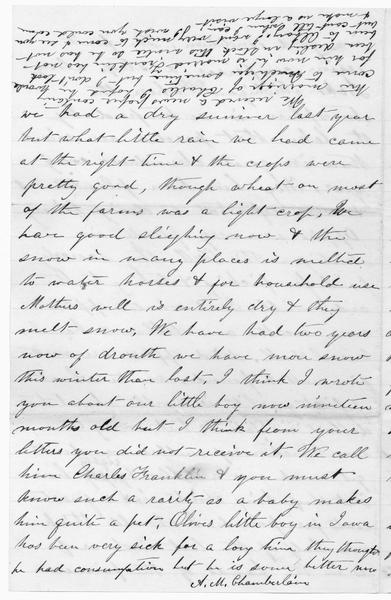 we had a dry summer last year
but what little rain we had came
at the right time & the crops were
pretty good, though wheat on most
of the farms was a light crop. We
have good sleighing now & the
snow in many places is melted
to water horses & for household use
Mothers well is entirely dry & they
melt snow. We have had two years
now of drouth we have more snow
this winter than last. I think I wrote
you about our little boy now nineteen
months old but I think from your
letters you did not receive it. We call
him Charles Franklin & you must
know such a rarity as a baby makes
him quite a pet. Olives little boy in Iowa
has been very sick for a long time they thought
he had consumption but he is some better now
A. M. Chamberlain
We received a newspaper containing
the marriage of Charles G. hope he would
come to Michigan some time but don't look
for him now he is married. Franklin has not
been dealing in stock this winter he has not
been to Albany I want very much to come & see you
but cant tell when I wish you could come
& make us a large visit